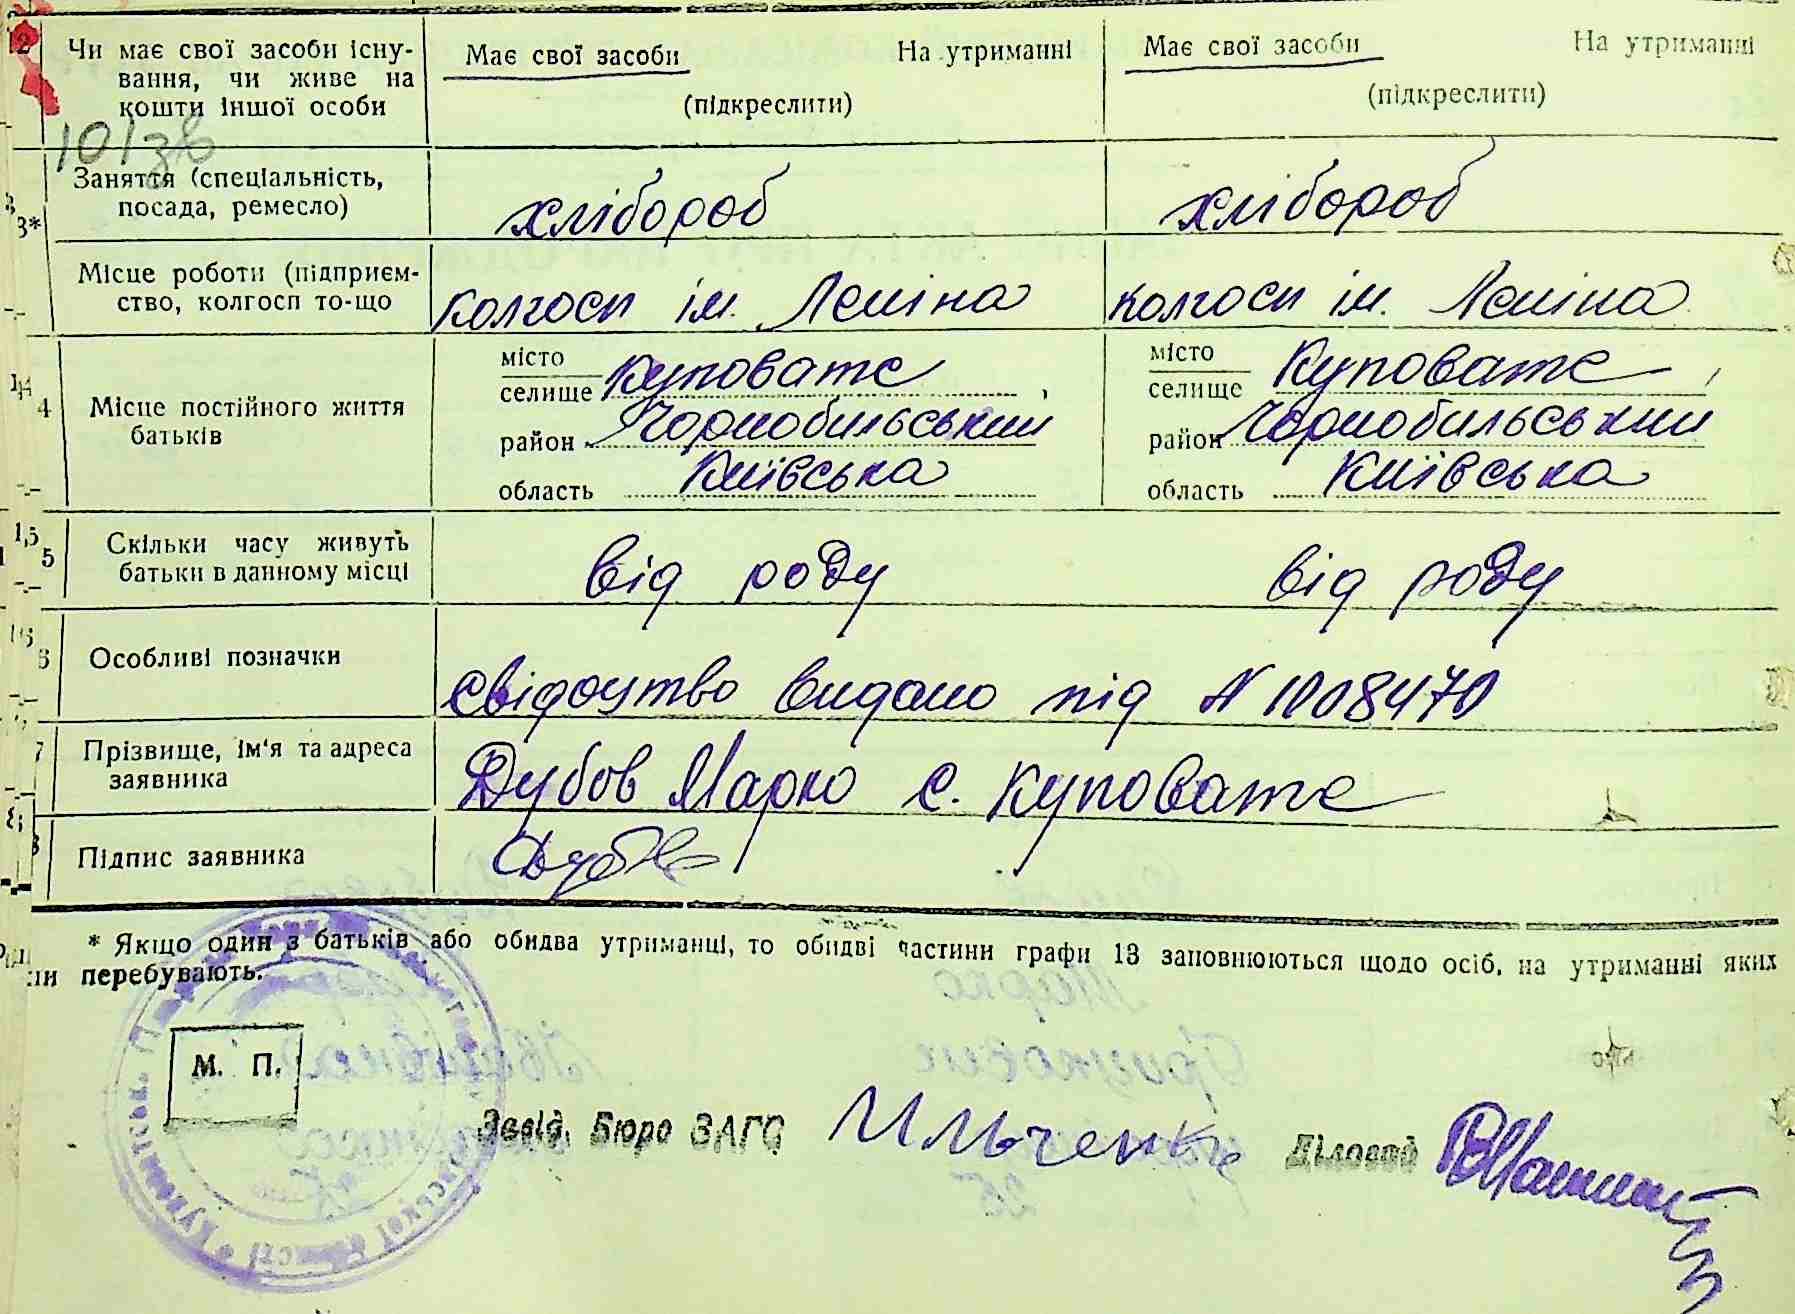 12 Чи має свої засоби існу-
вання, чи живе на
кошти іншої особи
Має свої засоби На утриманні
(підкреслити)
Має свої засоби На утриманні
(підкреслити)
10/зв
3* Заняття (спеціальність,
посада, ремесло)
хлібороб
хлібороб
Місце роботи (підприєм-
ство, колгосп то-що
колгосп ім. Леніна
колгосп ім. Леніна
14 4 Місце постійного життя
батьків
місто
селище Куповате,
район Чорнобильський
область Київська
місто
селище Куповате,
район Чорнобильський
область Київська
15 5 Скільки часу живуть
батьки в данному місці
від роду
від роду
16 6 Особливі позначки
Свідоцтво видано під N 1008470
7 Прізвище, ім'я та адреса
заявника
Дубов Марко с. Куповате
8 Підпис заявника
* Якщо один з батьків або обидва утриманці, то обидві частини графи 13 заповнюються щодо осіб, на утриманні яких
перебувають.
М. П.
Завід. Бюро ЗАГС Ильченко Діловод